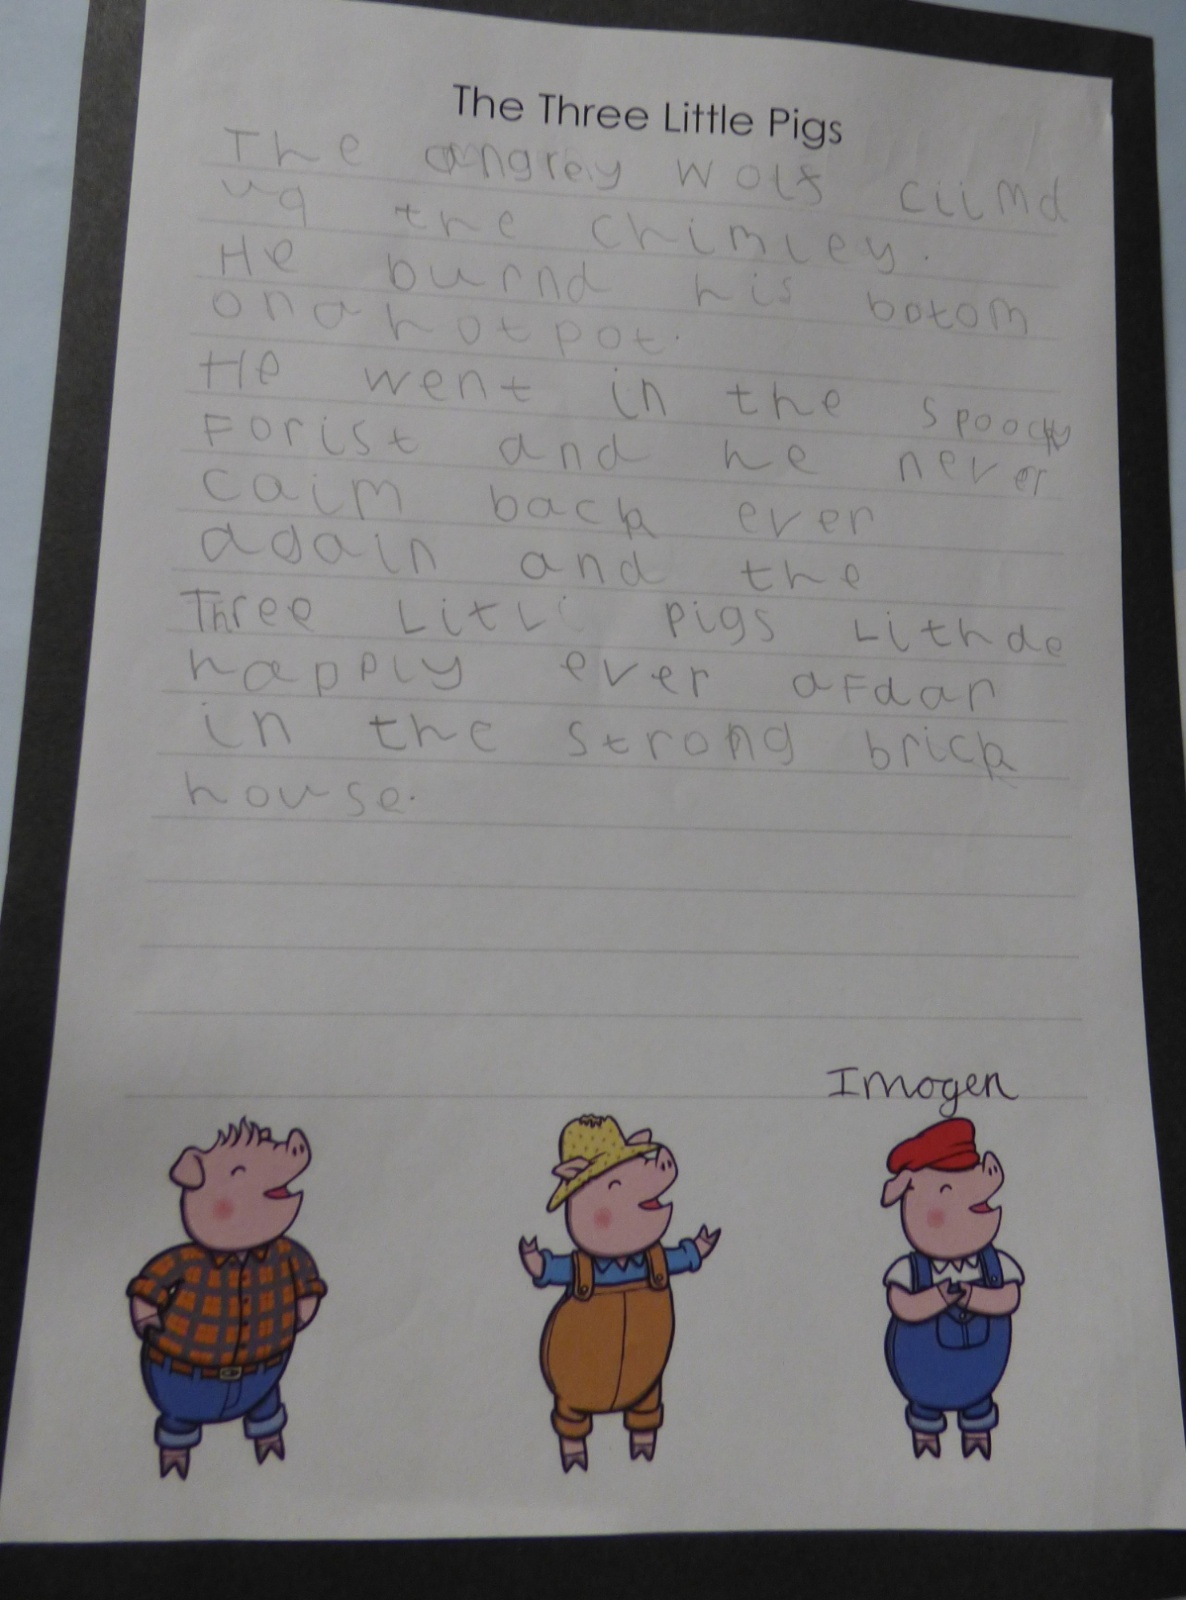 The Three Little Pigs
The angrey wolf cliimd
up the chimley.
He burnd his botom
on a hot pot.
He went in the spoocky
Forist and he never
caim back ever
again and the
Three Litli pigs Lithde
happly ever aFdar
in the strong brick
house.
Imogen